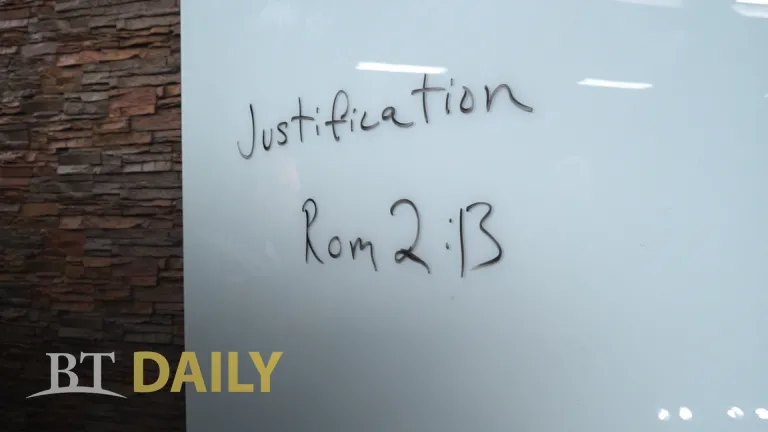 Justification
Rom 2:13
BT DAILY